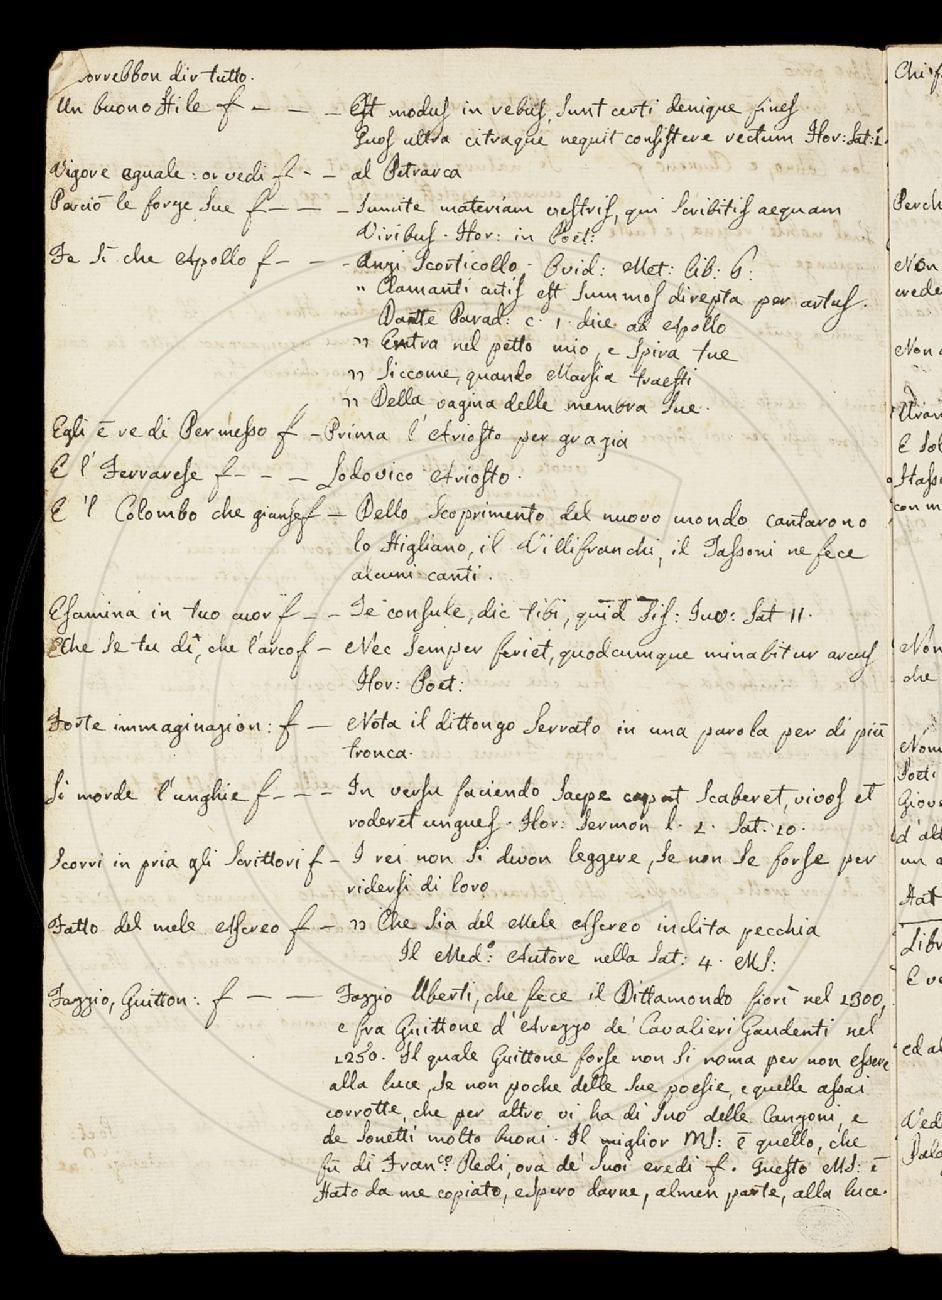 vorrebbon dir tutto.
Un buono Stile f – – – Est modus in rebus, sunt certi denique fines
Quos ultra citraque nequit consistere rectum Hor: Sat: 1.
Vigore eguale: or vedi f – – al Petrarca
Perciò le forze sue f – – – Sumite materiam vestris, qui scribitis aequam
Viribus. Hor: in Poet:
Fe sì che Apollo f – – – Anzi Scorticollo. Ovid: Met: lib: 6:
" Clamanti cutis est summos direpta per artus.
Dante Parad: c. 1. dice ad Apollo
" Entra nel petto mio, e spira tue
" Siccome, quando Marsia traesti
" Della vagina delle membra sue.
Egli è re di Permesso f – Prima l'Ariosto per grazia
E l' Ferrarese f – – – Lodovico Ariosto.
E 'l Colombo che giunse f – Dello scoprimento del nuovo mondo cantarono
lo Stigliano, il Villifranchi, il Tassoni ne fece
alcuni canti.
Esamina in tuo cuor f – – Te consule, dic tibi, quid sis: Juv: Sat 11.
Che se tu di', che l'arco f – Nec semper feriet, quodcumque minabitur arcus
Hor: Poet:
Forte immaginazion: f – Nota il dittongo serrato in una parola per di più
tronca.
Si morde l'unghie f – – – In versu faciendo saepe caput scaberet, vivos et
roderet ungues. Hor: Sermon l. 2. Sat: 10.
Scorri in pria gli scrittori f – I rei non si devon leggere, se non se forse per
ridersi di loro
Fatto del mele Ascreo f – " Che sia del Mele Ascreo inclita pecchia
Il Med.º Autore nella Sat: 4. MS:
Fazzio, Guitton: f – – Fazzio Uberti, che fece il Dittamondo fiorì nel 1300,
e fra Guittone d'Arezzo de' Cavalieri Gaudenti nel
1250. Il quale Guittone forse non si noma per non essere
alla luce, se non poche delle sue poesie, e quelle assai
corrotte, che per altro vi ha di suo delle Canzoni, e
de Sonetti molto buoni. Il miglior MS: è quello, che
fù di Fran.co Redi, ora de' suoi eredi f. Questo MS: è
stato da me copiato, e spero darne, almen parte, alla luce.
Chi f
Perch
Non
crede
Non
E Sol
con m
Non
che
Nom
Poeti
Giov
d'al
un
Stat
Libr
E ve
ed al
Ved
Pala